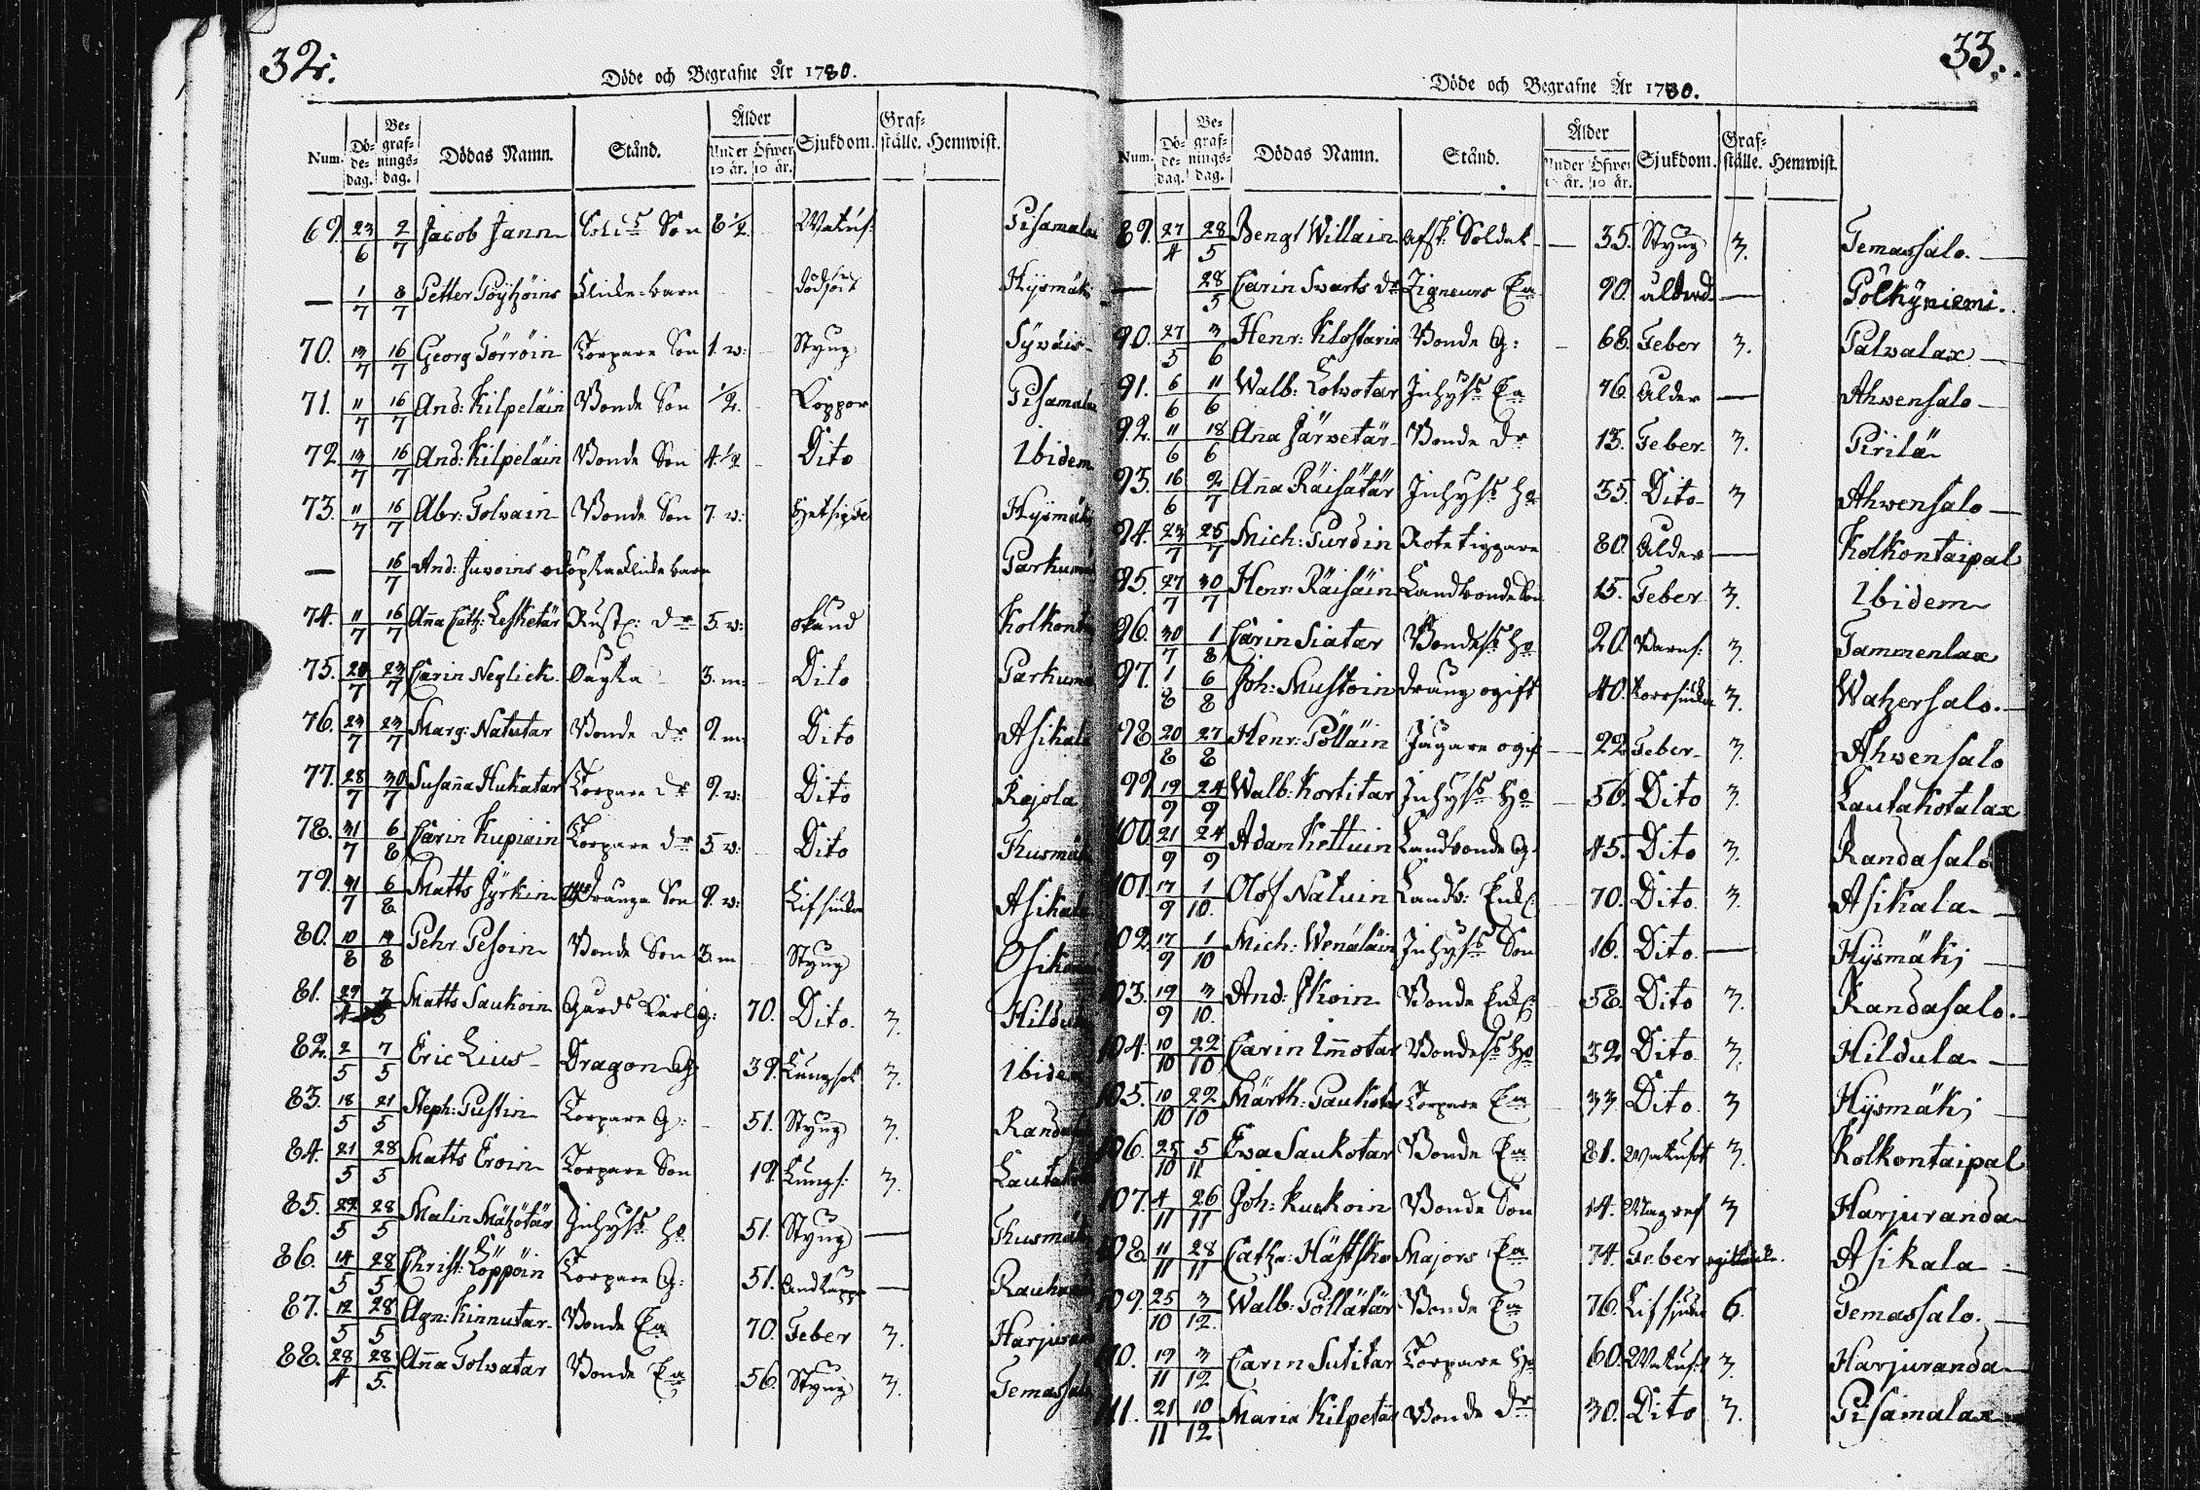 32.
Döde och Begrafne År 1780.
Num. Dödedag. Begrafningsdag. Dödas Namn. Stånd. Ålder Under 10 år. Öfwer 10 år. Sjukdom. Grafställe. Hemwist.
69. 23/6 2/7 Jacob Jann Son 6 1/2 Watus: Pisamala
— 1/7 8/7 Petter Pöyhöins barn dödföd Hysmäki
70. 13/7 16/7 Georg Törröin Torpare Son 1. v: Styng Sywäis
71. 11/7 16/7 And: Kilpeläin Bonde Son 1/2. Koppor Pisamala
72. 13/7 16/7 And: Kilpeläin Bonde Son 4 1/2 Dito Ibidem
73. 11/7 16/7 Abr: Tolvain Bonde Son 7. v: Hetsigde Hysmäki
— 16/7 And: Juvoins odöpta barn Parkum
74. 11/7 16/7 Anna Cath: Lesketär Rust: dr 5. v: okänd Kolkont
75. 20/7 23/7 Carin Neglick Oägta 3. m: Dito Parkum
76. 23/7 23/7 Marg: Natutar Bonde dr 9. m: Dito Asikala
77. 28/7 30/7 Susanna Hukatar Torpare dr 9. v: Dito Rajola
78. 31/7 6/8 Carin Kupiain Torpare dr 5 v: Dito Thusmäk
79. 31/7 6/8 Matts Jyrkin Drängs Son 9. v: Lifsiuka Asikala
80. 10/8 13/8 Pehr Pesoin Bonde Son 3. m Styng
81. 29/4 7/5 Matts Saukoin Gards Karl G: 70. Dito. 3. Hildul
82. 2/5 7/5 Eric Lius Dragon G: 39. Lungsot 3. Ibidem
83. 18/5 21/5 Steph: Pustin Torpare G: 51. Styng 3. Randa
84. 21/5 28/5 Matts Eroin Torpare Son 19. Lungs: 3. Lautak
85. 22/5 28/5 Malin Mähötär Inhyses Ho 51. Styng — Thusmäk
86. 14/5 28/5 Christ: Löppöin Torpare G: 51. Andtäppa — Rauha
87. 12/5 28/5 Agn: Kinnutar Bonde Ea 70. Feber 3. Harjurand
88. 28/4 28/5. Anna Tolvatar Bonde Ea 56. Styng 3. Temassalo
33.
Döde och Begrafne År 1780.
Num. Dödedag. Begrafningsdag. Dödas Namn. Stånd. Ålder Under 10 år. Öfwer 10 år. Sjukdom. Grafställe. Hemwist.
89. 27/4 28/5 Bengt Willain Afsk: Soldat — 35. Styng 3. Temassalo.
— 28/5 Carin Svarts dr Zigneurs Ea 90. ålderd. — Pölkyniemi.
90. 27/5 3/6 Henr: Klostarin Bonde G: 68. Feber 3. Palvalax
91. 6/6 11/6 Walb: Lotvotar Inhyses Ea 76. ålder — Ahvensalo
92. 11/6 18/6 Anna Järvetär Bonde dr 13. Feber 3. Pirilä
93. 16/6 2/7 Anna Räisätär Inhyses Ho 35. Dito 3 Ahvensalo
94. 23/7 25/7 Mich: Purdin Rotetiggare 80. ålder — Kolkontaipal
95. 27/7 30/7 Henr: Räisäin Landbonde Son 15. Feber 3. Ibidem
96. 30/7 1/8 Carin Siatar Bondes Ho 20. Barns: 3. Tammenlax
97. 1/8 6/8 Joh: Mustoin dräng ogift 40. 3. Watzersalo.
98. 20/8 27/8 Henr: Pölläin Jägare ogif — 22. Feber 3. Ahvensalo
99. 19/9 24/9 Walb: Kortitar Inhyses Ho 56. Dito 3. Lautakotalax
100. 21/9 24/9 Adam Kettuin Landbonde G: 45. Dito 3. Randasalo
101. 17/9 1/10. Olof Natuin Landb: Enkl: 70. Dito. 3. Asikala
102. 17/9 1/10 Mich: Wenäläin Inhyses Son 16. Dito. — Hysmäki
103. 19/9 3/10. And: Ikoin Bonde Enkl: 58. Dito 3. Randasalo.
104. 10/10 22/10 Carin Immotar Bondes Ho 32 Dito 3. Hildula
105. 10/10 22/10 Märth: Paukotar Torpare Ea 33 Dito. 3 Hysmäki
106. 25/10 5/11 Ewa Saukotar Bonde Ea 81. Watusot 3. Kolkontaipal
107. 4/11 26/11 Joh: Kuckoin Bonde Son 14. Magref 3 Harjuranda
108. 11/11 28/11 Cathr: Hästsko Majors Ea 74. Feber Asikala
109. 25/10 3/12. Walb: Pöllätär Bonde Ea 76. Lifsiuka 6. Temassalo.
110. 19/11 3/12 Carin Sutitar Torpare Ho 60. Watusot 3. Harjuranda
111. 21/11 10/12 Maria Kilpetär Bonde dr 30. Dito 3. Pisamalax